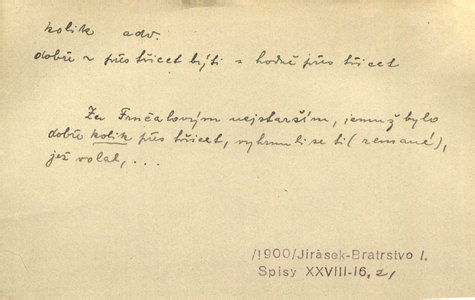 kolik adv.
dobře ~ přes třicet býti = hodně přes třicet
Za Frnčalovým nejstarším, jemuž bylo
dobře kolik přes třicet, vyhrnuli se ti (zemané),
jež volal, ...
/1900/Jirásek-Bratrstvo I.
Spisy XXVIII-16, 21